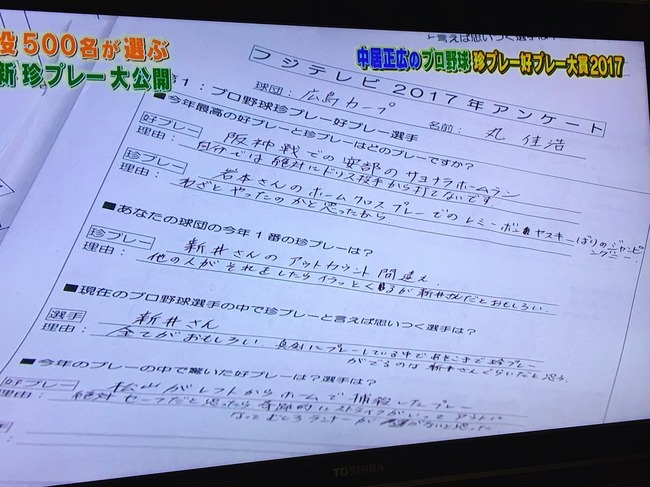 役500名が選ぶ
新珍プレー大公開
中居正広のプロ野球珍プレー好プレー大賞2017
と言えば思いつく選手は?
フジテレビ2017年アンケート
1:プロ野球珍プレー好プレー選手
球団:広島カープ
名前:丸 佳浩
■今年最高の好プレーと珍プレーはどのプレーですか?
好プレー 阪神戦での安部のサヨナラホームラン
理由: 自分では絶対にドリス投手から打てないです
珍プレー 岩本さんのホームクロスプレーでのレミーボンヤスキーばりのジャンピングニー
理由: わざとやったのかと思ったから
■あなたの球団の今年1番の珍プレーは?
珍プレー 新井さんのアウトカウント間違え.
理由: 他の人がそれをしたらイラッとくるが新井さんだとおもしろい.
■現在のプロ野球選手の中で珍プレーと言えば思いつく選手は?
選手 新井さん
理由: 全てがおもしろい 真剣にプレーしている中であそこまで珍プレー
がでるのは新井さんぐらいだと思う.
■今年のプレーの中で驚いた好プレーは?選手は?
好プレー 松山がレフトからホームで捕殺したプレー
理由: 絶対セーフだと思ったら奇跡的にストライクがいって
ランナーが ないと思った
TOSHIBA